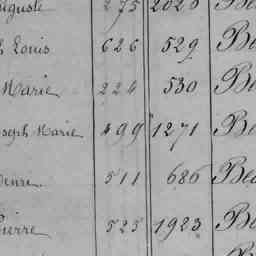 uguste 275 2028 Be
Louis 626 529 Be
Marie 224 530 Be
seph Marie 499 1271 Be
Henri 511 686 Bea
Pierre 525 1923 Be